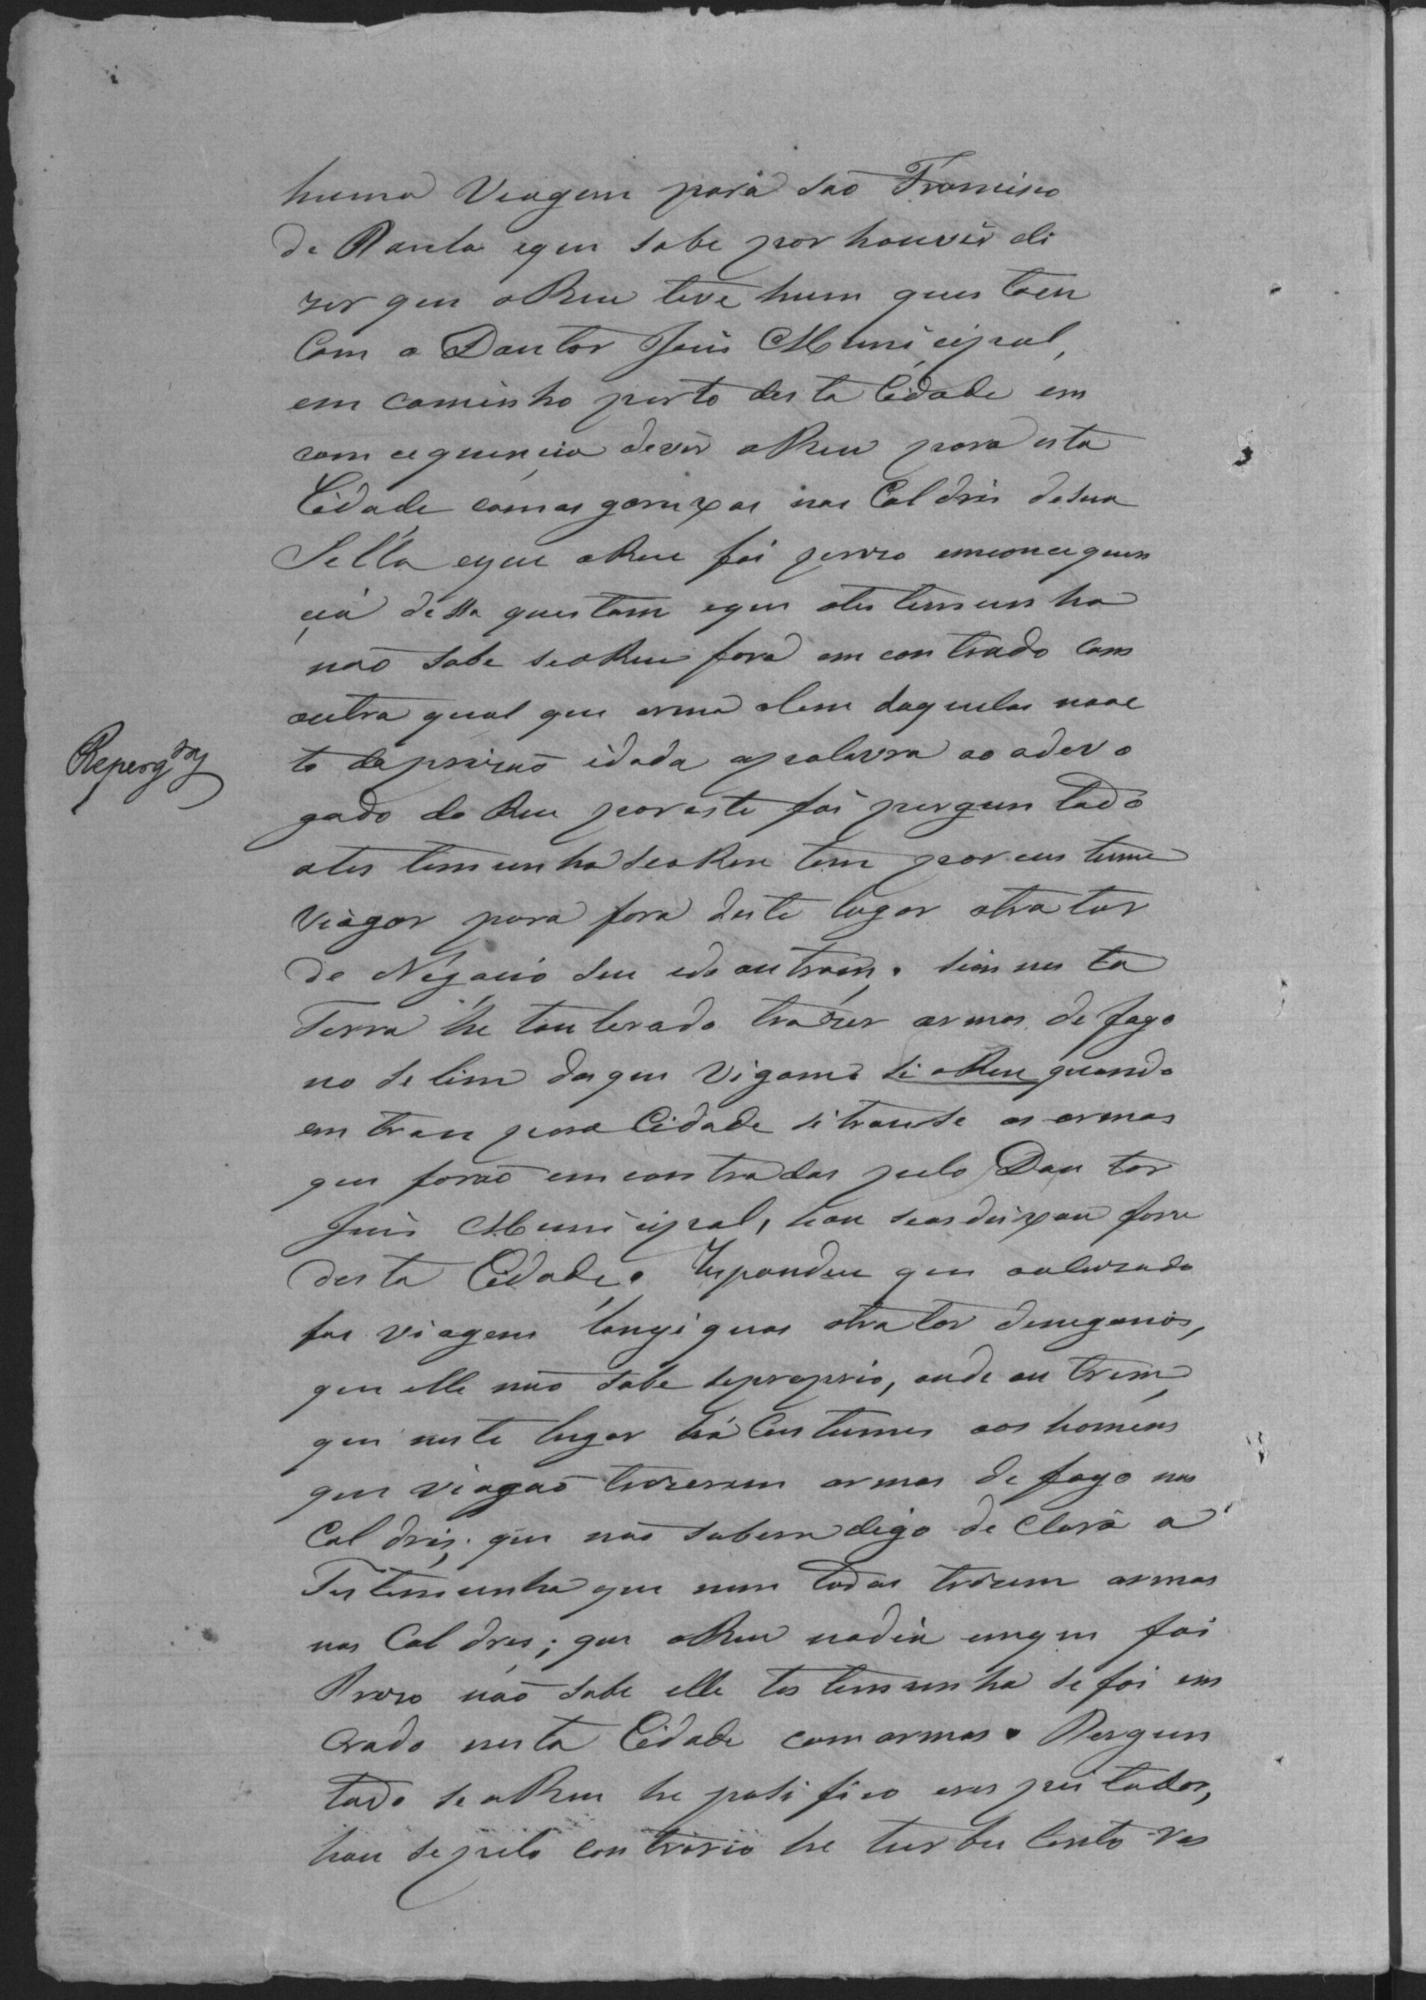 huma Viagem para são Francisco
de Paula eque sabe por houvir di
zer que oReu teve hum questaou
Com o Doutor Juis Municipal,
em caminho perto desta Cidade em
comcequencia devir oReu para esta
Cidade comas garruxas nos Coldris desua
Sella eque oReu foi prezo emconcequen
cia dessa questam eque atestemunha
não sabe seoReu fora emcontrado com
outra qual quer arma alem daquelas noac
to daprizão edada apalavra ao advo
Repergdas
gado do Reu poreste foi perguntado
atestemunha seoReu tem porcustume
Viagar para fora deste lugar atratar
de Negocio seu edeoutrem, sim nesta
Terra he toulerado trazer armas de fogo
no selim dosque Vigamo si oReu quando
entrou para Cidade si trouse as armas
que forão emcontradas pelo Doutor
Juis Municipal, hou seasdeixou fora
desta Cidade. Respondeu que oalusado
fas viagens longiquas atratar denegocios,
que elle não sabe seproprio, oude outrem
que neste lugar há Custumes aos homens
que viagão trazerem armas de fogo nos
Coldris, que não sabem digo declara a
Testemunha que nem todos trazem armas
nos Coldres; que oReu nodia emque foi
Prezo não sabe elle testemunha sefoi en
trado nesta Cidade com armas. Pergun
tado seoReu he pasifico erespeitador,
hou sepelo contrario he turbulento res